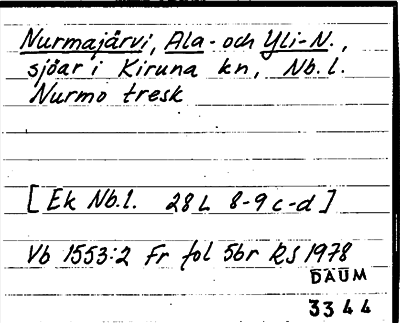 Nurmajärvi, Ala- och Yli-N.,
sjöar i Kiruna kn, Nb.l.
Nurmo tresk
[Ek Nb.l. 28L 8-9 c-d]
Vb 1553:2 Fr fol 5br RS 1978
DAUM
3344